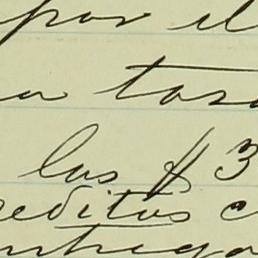 por el
a tas
las $ 3
creditos c
ntrega